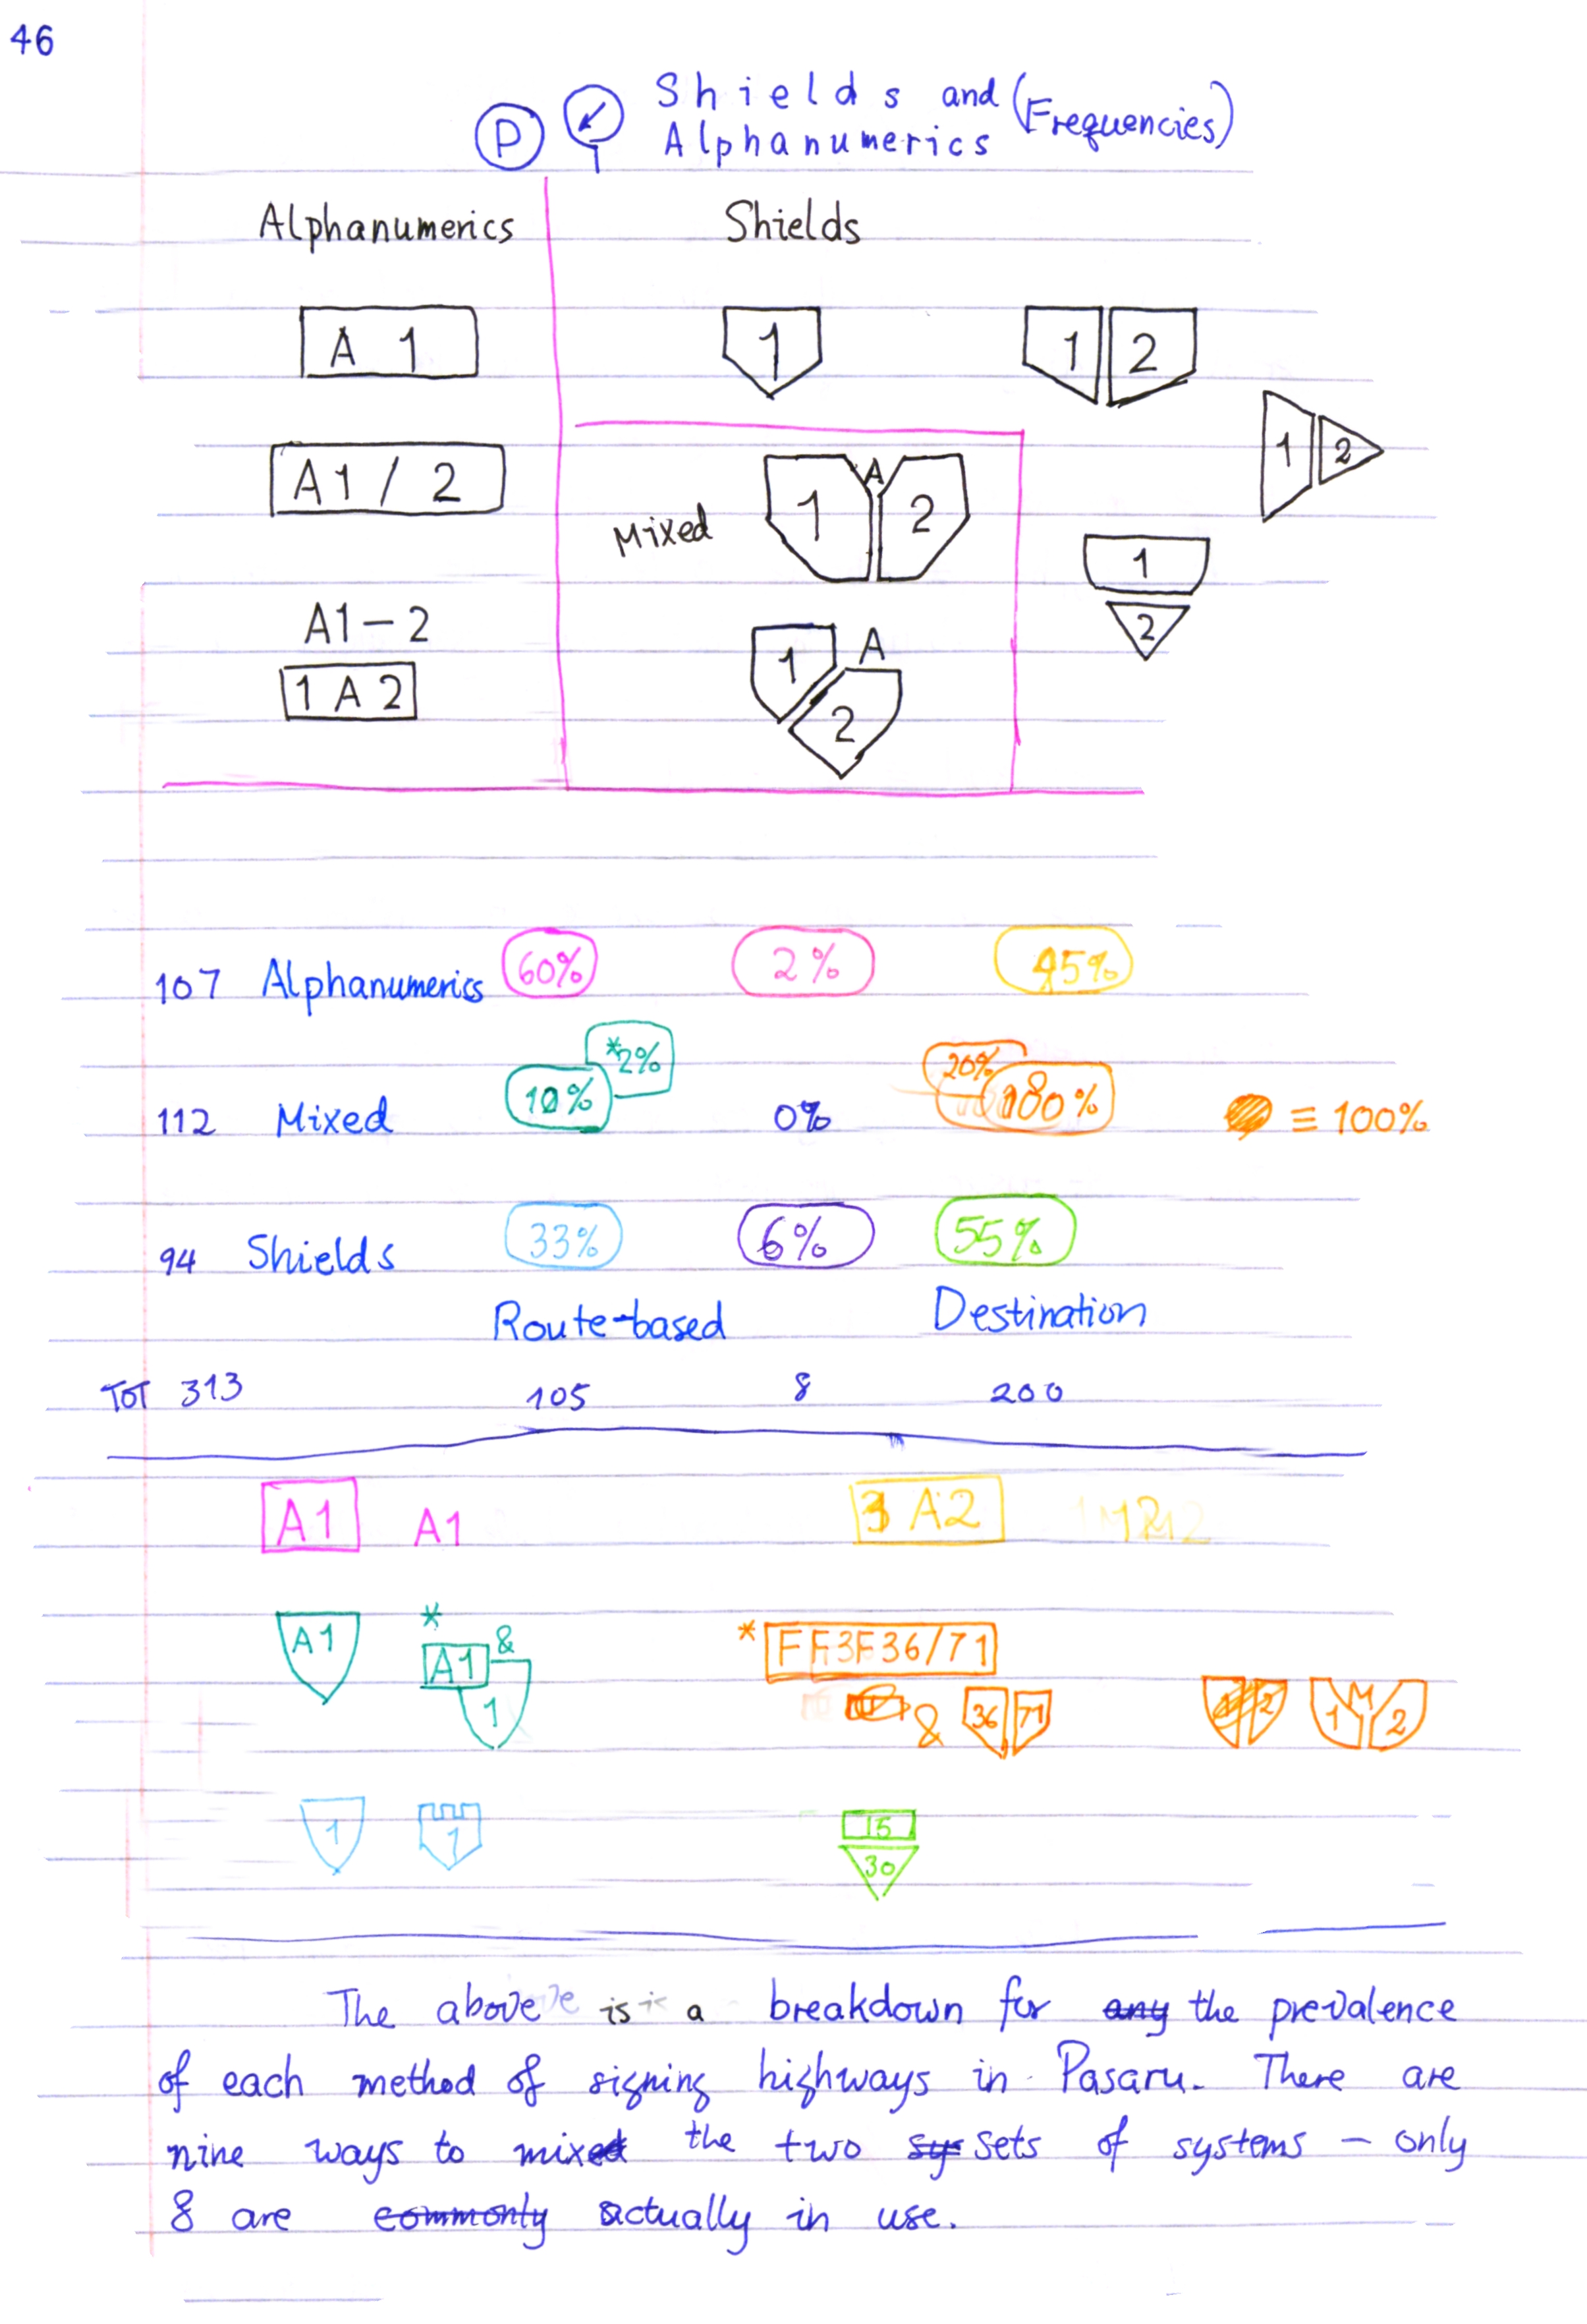 46
P
Shields and (Frequencies)
Alphanumerics
Alphanumerics Shields
A 1 1 1 2
1 2
A1 / 2 Mixed 1 A 2
1
2
A1-2
1 A 2
1 A
2
107 Alphanumerics 60% 2% 45%
*2% 20%
112 Mixed 10% 0% 100% ≡ 100%
94 Shields 33% 6% 55%
Route-based Destination
TOT 313 105 8 200
A1 A1 A2
A1 * A1 & 1 * F36/71
& 36 71 1 2 1 M 2
1 1 15
30
The above is a breakdown for any the prevalence
of each method of signing highways in Pasaru. There are
nine ways to mixed the two sy sets of systems – only
8 are commonly actually in use.